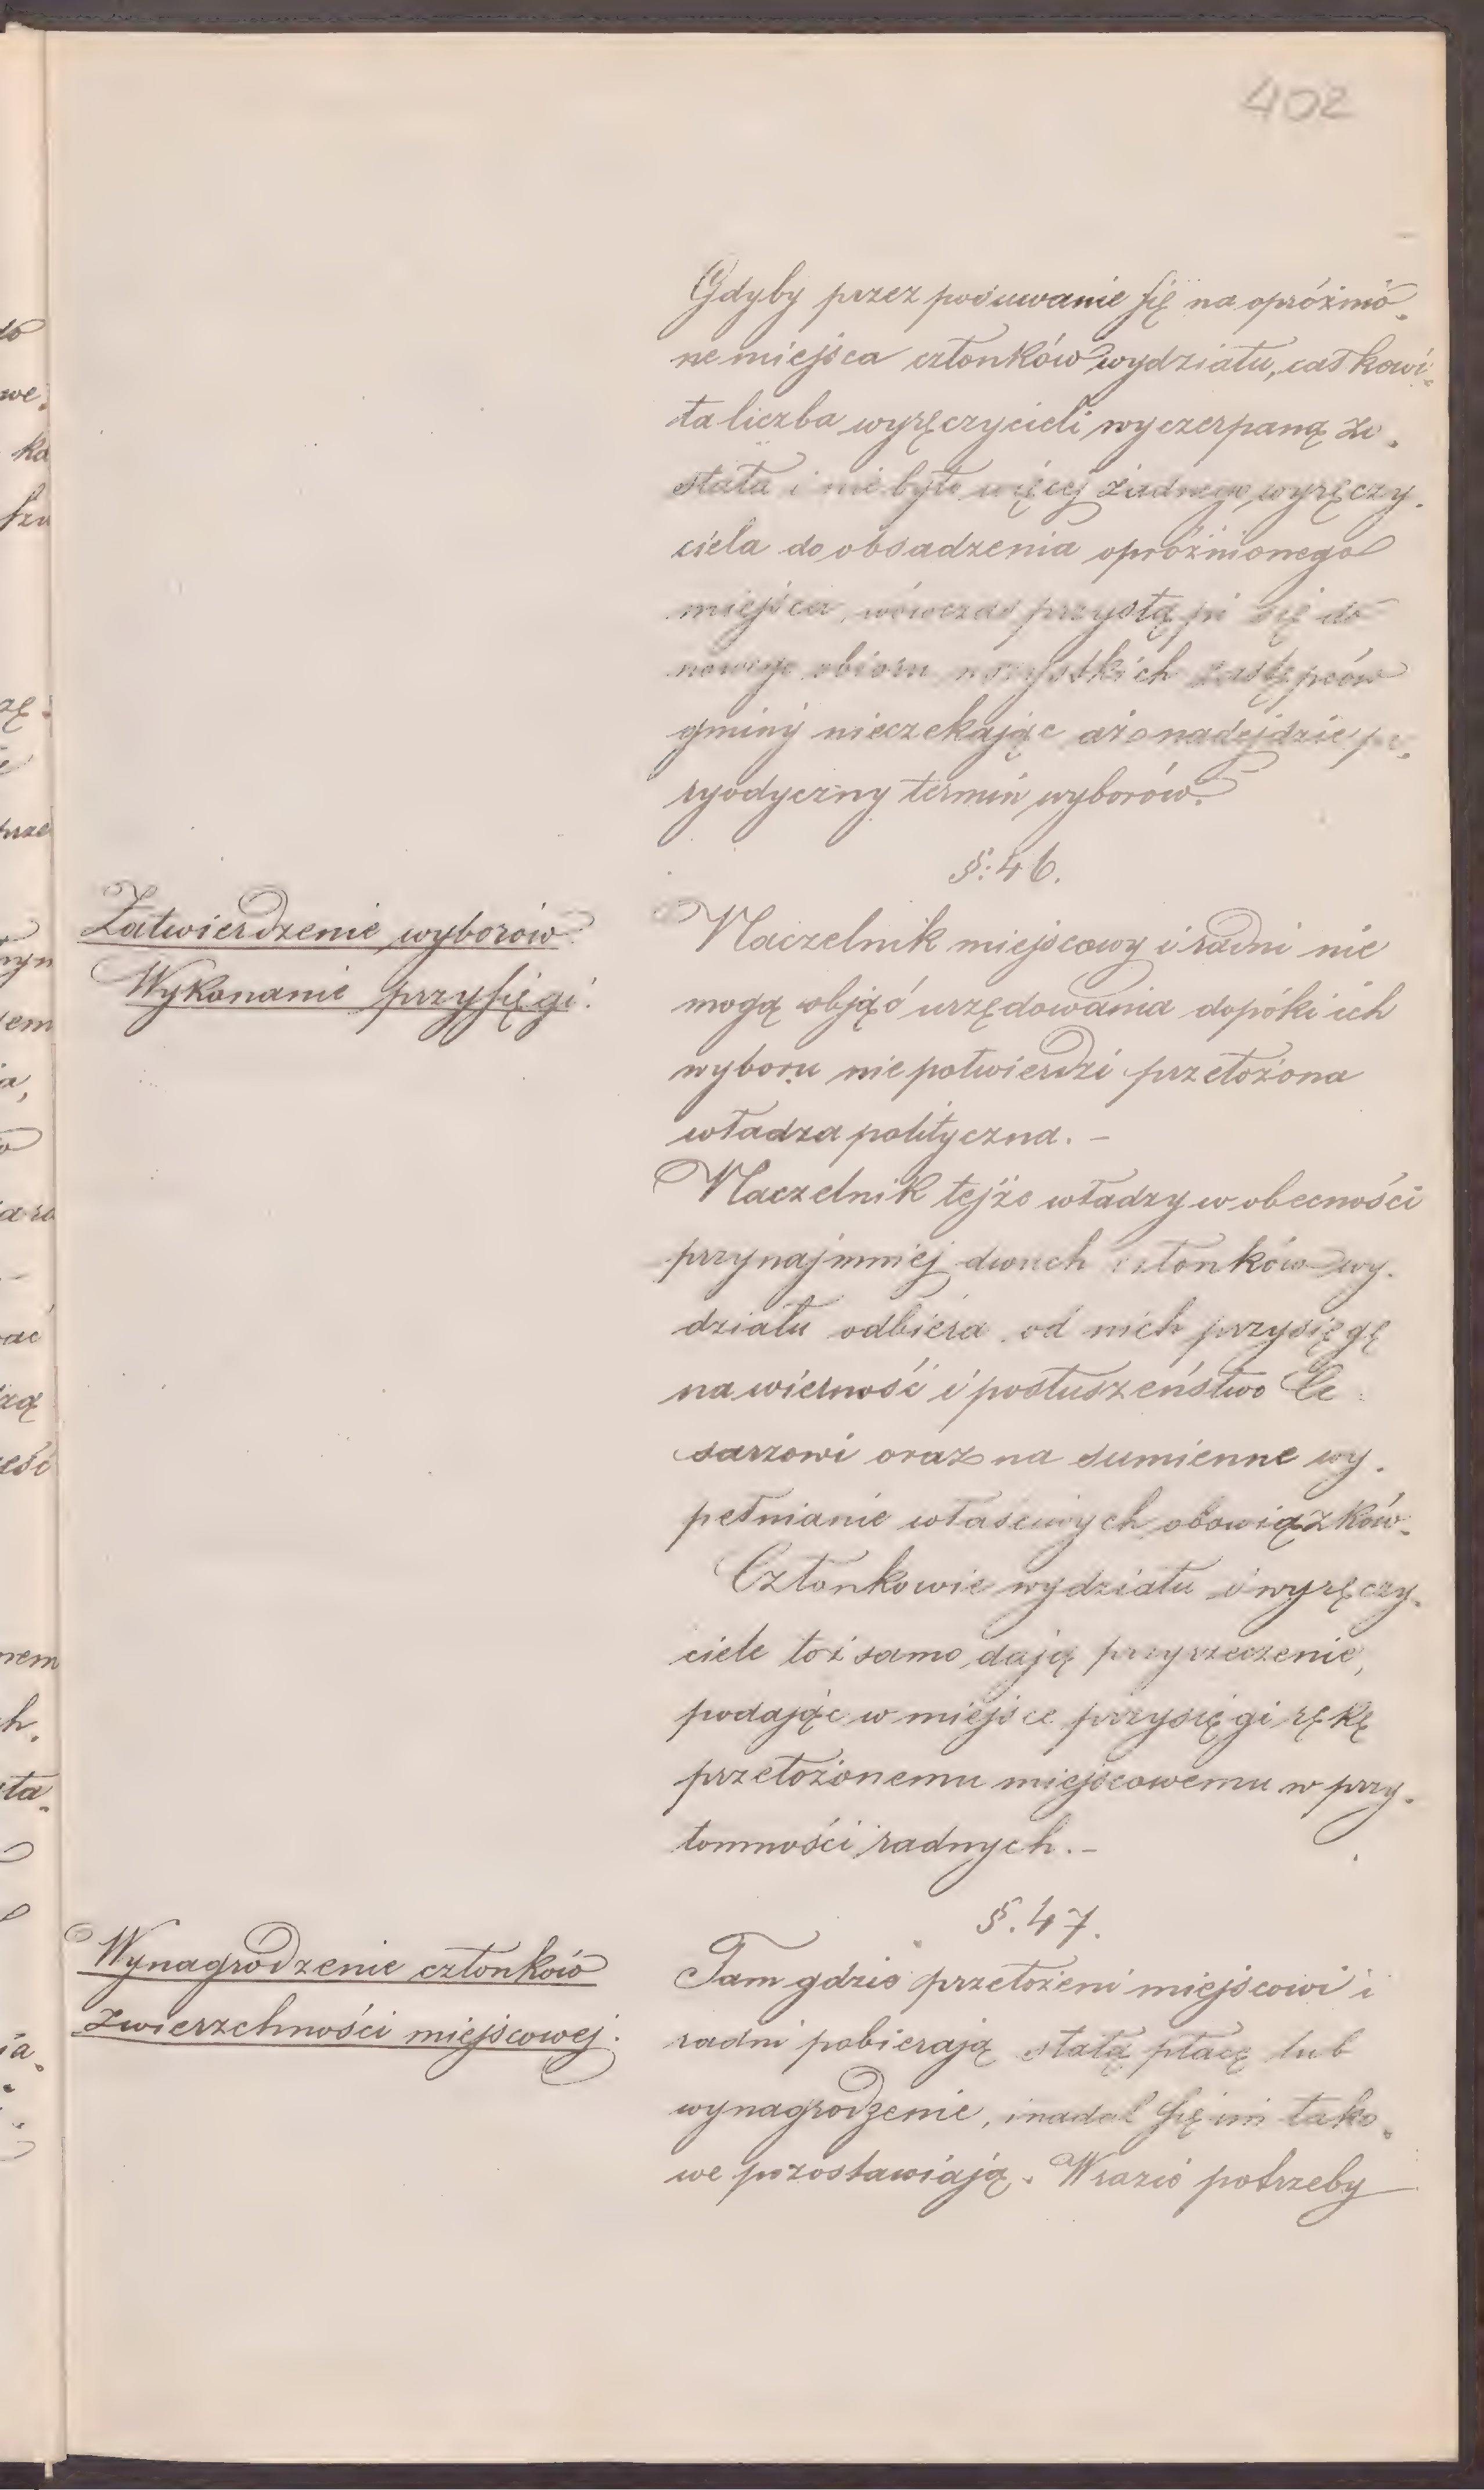 402
Gdyby przez posuwanie się na opróżnio-
ne miejsca członków wydziału, całkowi-
ta liczba wyręczycieli wyczerpaną zo-
stała i nie było więcej żadnego wyręczy-
ciela do obsadzenia opróżnionego
miejsca, wówczas przystąpi się do
nowego obioru wszystkich zastępców
gminy nieczekając aż nadejdzie pe-
ryodyczny termin wyborów.
§. 46.
Zatwierdzenie wyborów
Wykonanie przysięgi.
Naczelnik miejscowy i radni nie
mogą objąć urzędowania dopóki ich
wyboru nie potwierdzi przełożona
władza polityczna. –
Naczelnik tejże władzy w obecności
przynajmniej dwuch członków wy-
działu odbiera od nich przysięgę
na wierność i posłuszeństwo Ce-
sarzowi oraz na sumienne wy-
pełnianie właściwych obowiązków.
Członkowie wydziału i wyręczy-
ciele toż samo dają przyrzeczenie,
podając w miejsce przysięgi rękę
przełożonemu miejscowemu w przy-
tomności radnych. –
§. 47.
Wynagrodzenie członków
zwierzchności miejscowej.
Tam gdzie przełożeni miejscowi i
radni pobierają stałą płacę lub
wynagrodzenie, i nadal się im tako-
we pozostawiają. W razie potrzeby